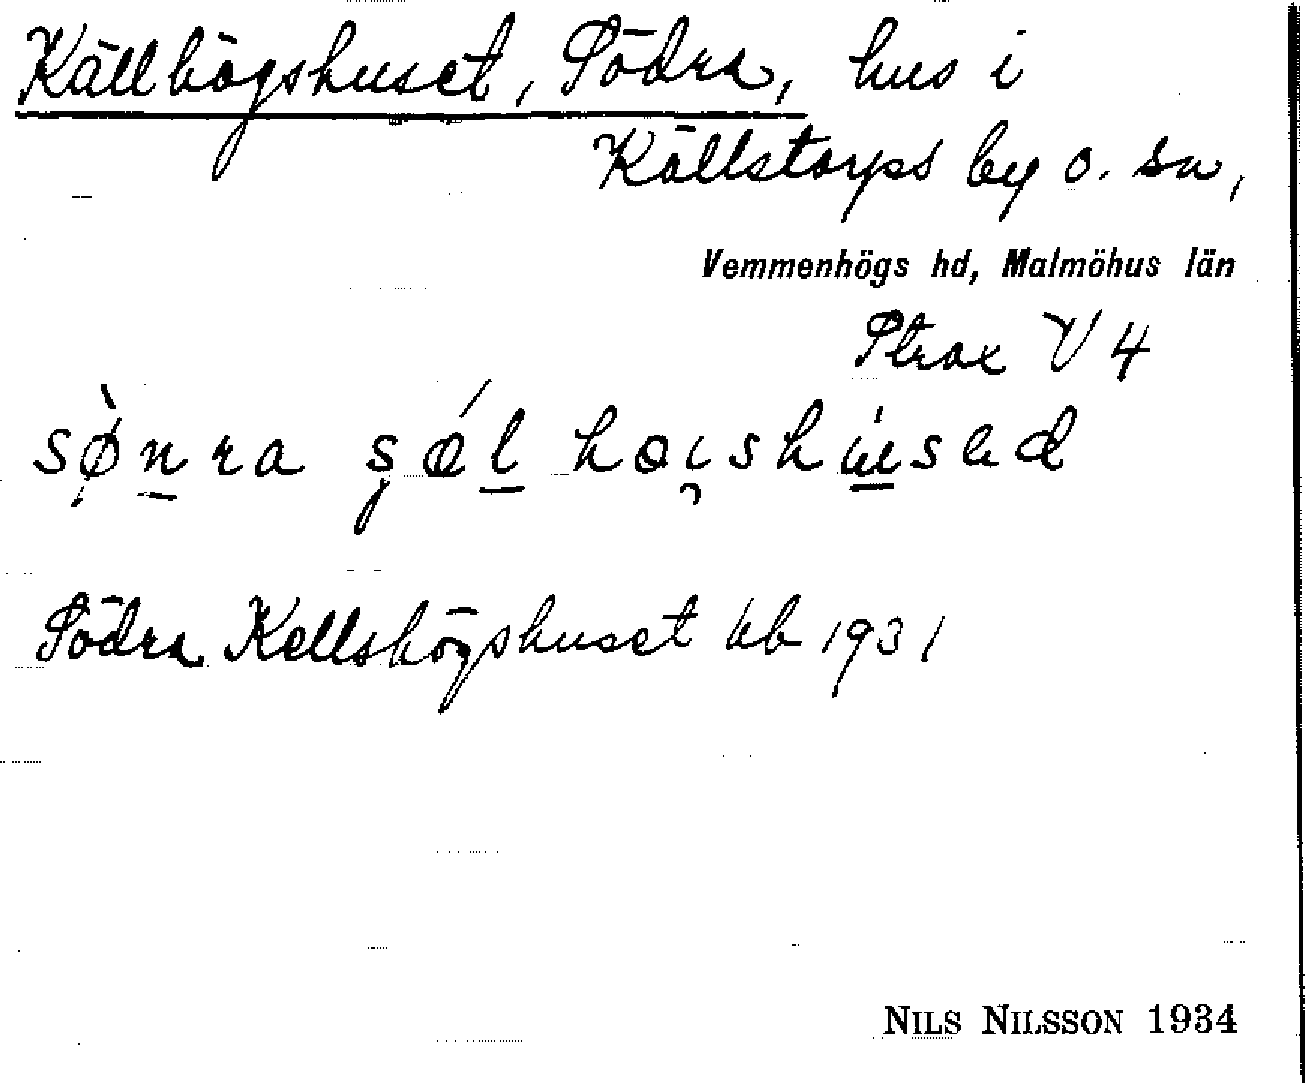 Källhögshuset, Södra, hus i
Källstorps by o. sn,
Vemmenhögs hd, Malmöhus län
Strax V 4
Södra Kellshögshuset kb 1931
NILS NILSSON 1934